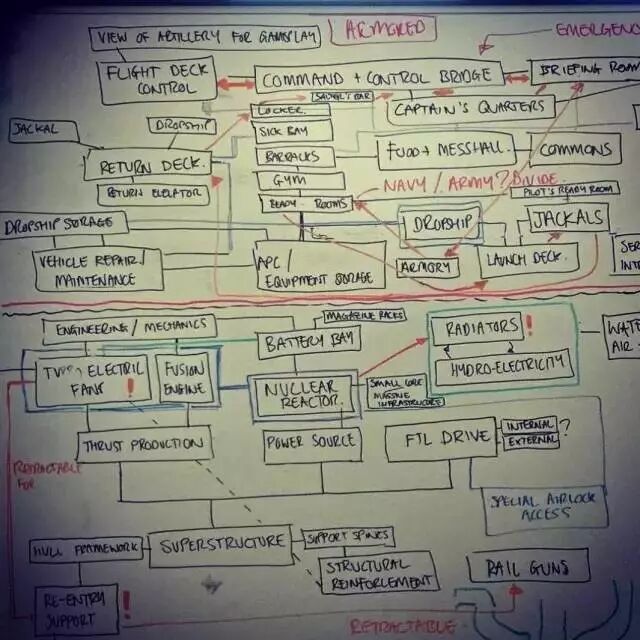 VIEW OF ARTILLERY FOR GAMEPLAY
ARMORED
EMERGENC
FLIGHT DECK
CONTROL
COMMAND + CONTROL BRIDGE
BRIEFING ROOM
LOCKER
CAPTAIN'S QUARTERS
JACKAL
DROPSHIP
SICK BAY
RETURN DECK.
BARRACKS
FOOD + MESSHALL
COMMONS
RETURN ELEVATOR
GYM
NAVY / ARMY? DIVIDE.
PILOT'S READY ROOM
READY ROOMS
DROPSHIP STORAGE
DROPSHIP
JACKALS
VEHICLE REPAIR/
MAINTENANCE
APC/
EQUIPMENT STORAGE
ARMORY
LAUNCH DECK.
SER
INT
ENGINEERING / MECHANICS
MAGAZINE RACKS
BATTERY BAY
RADIATORS !
WATE
AIR -
ELECTRIC
FANS !
FUSION
ENGINE
NUCLEAR
REACTOR.
SMALL CORE
MASSIVE
INFRASTRUCTURE
HYDRO-ELECTRICITY
THRUST PRODUCTION
POWER SOURCE
FTL DRIVE
INTERNAL
EXTERNAL
?
RETRACTABLE
FOR
SPECIAL AIRLOCK
ACCESS
HULL FRAMEWORK
SUPERSTRUCTURE
SUPPORT SPINES
STRUCTURAL
REINFORCEMENT
RAIL GUNS
RE-ENTRY
SUPPORT !
RETRACTABLE